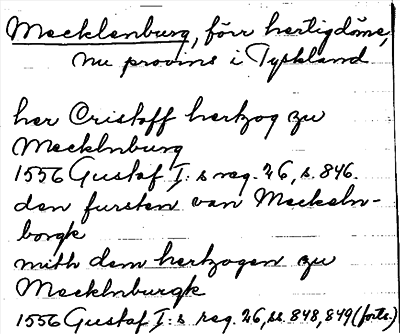 Mecklenburg, förr hertigdöme,
nu provins i Tyskland
her Cristoff hertzog zu
Mecklnburg
1556 Gustaf I:s reg. 26, s. 846.
den fursten van Meckeln-
borgk
mith dem hertzogen zu
Mecklnburgk
1556 Gustaf I:s reg. 26, ss. 848, 849 (forts.)